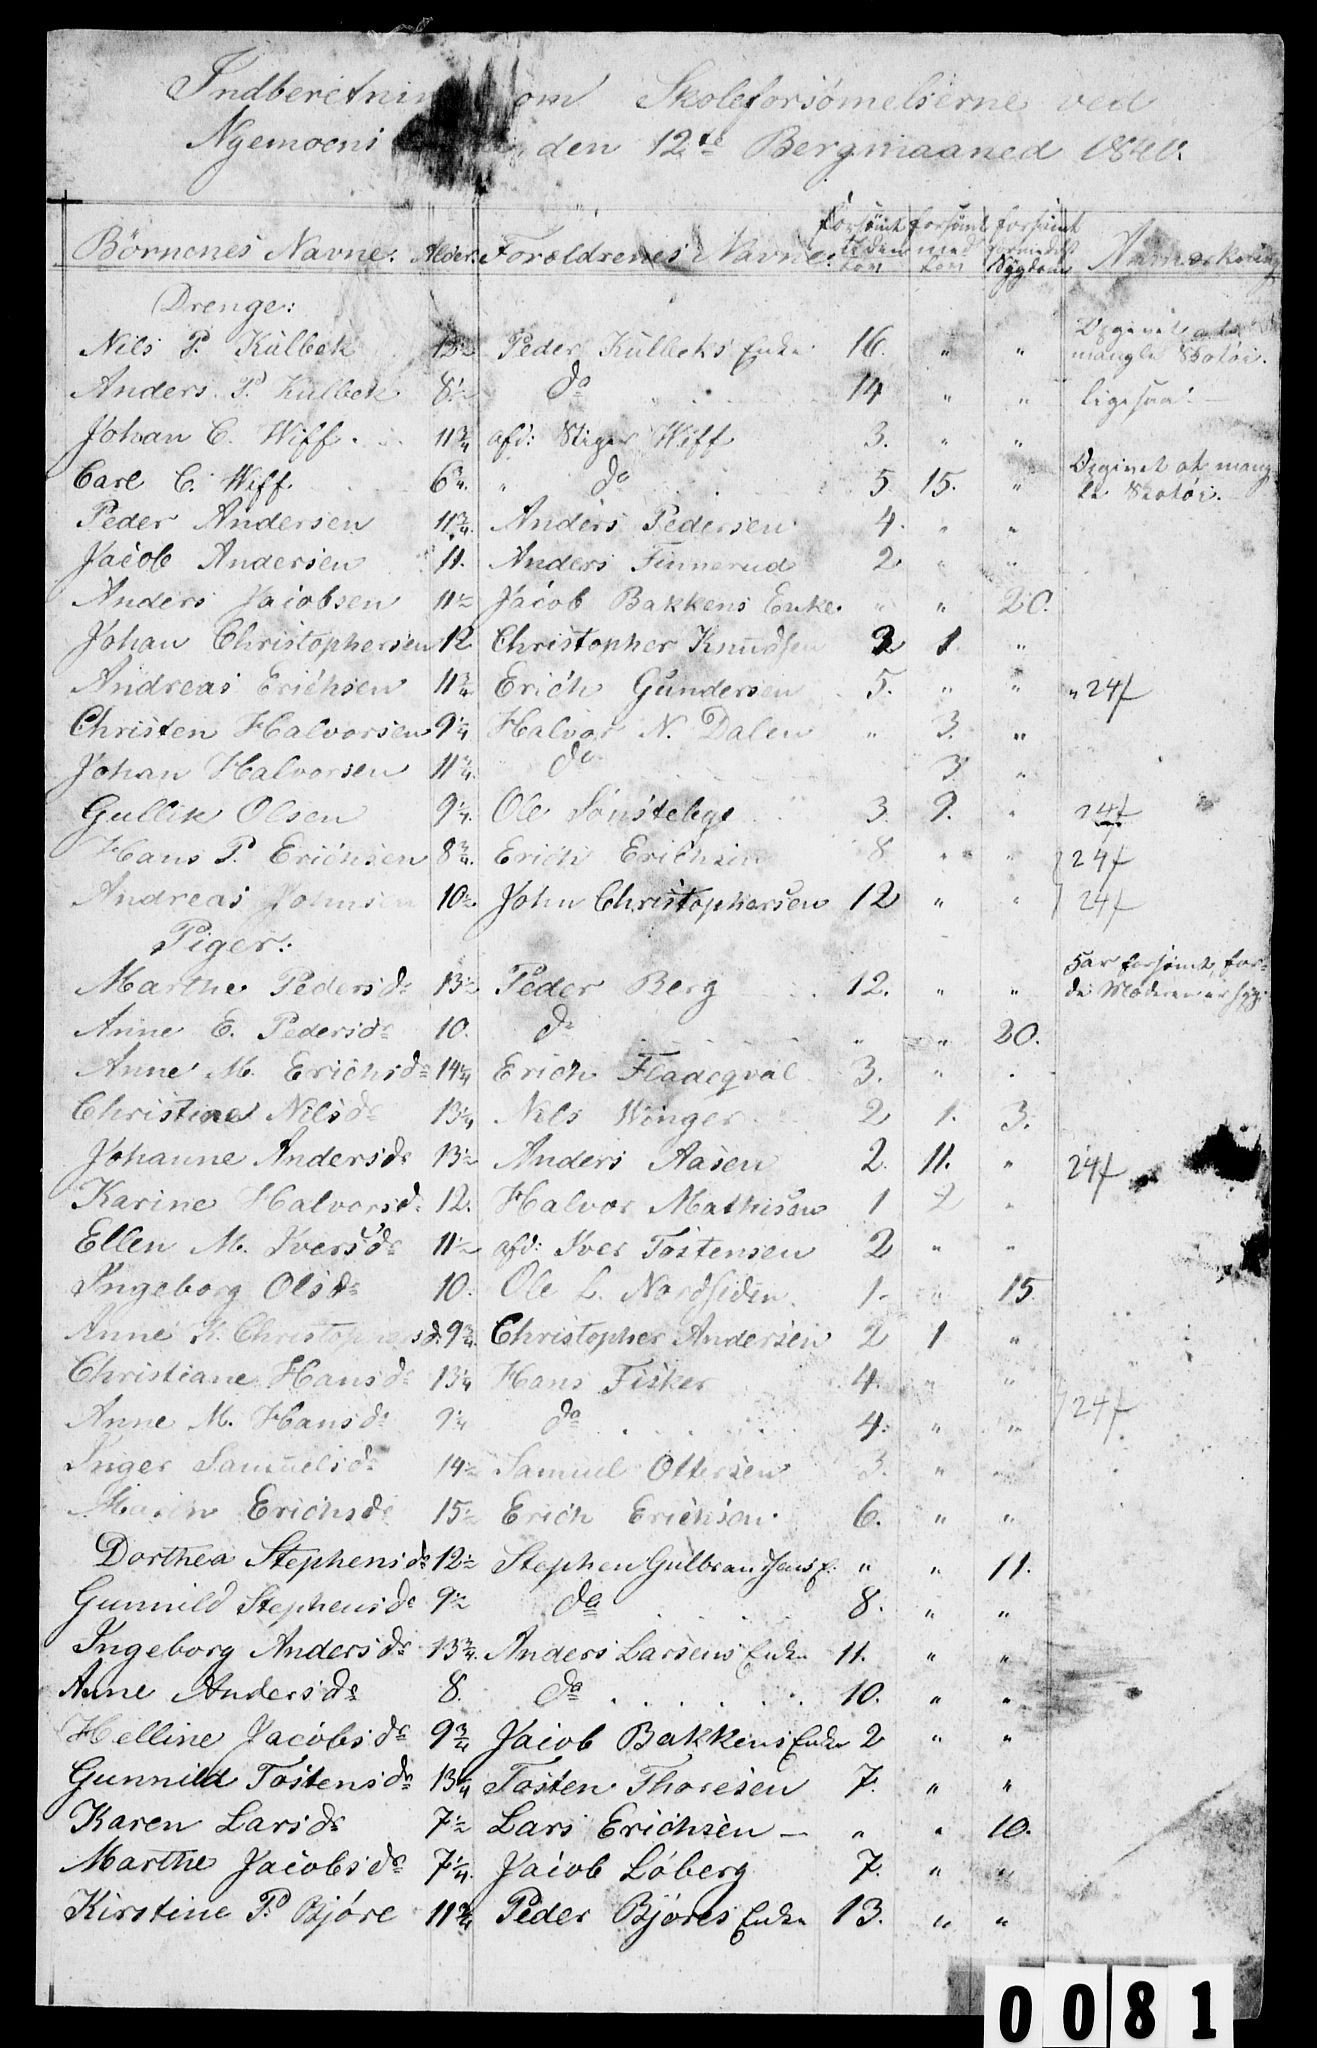 Indberetnin om Skoleforsömelserne ved
Nyemoens den 12te Bergmaaned 1841.
Börnenes Navne. Alder. Forældrenes Navne. Forsömt uden Lov Forsömt med Lov Forsömt formedelst Sygdom Anmærkning
Drenge:
Nils P. Külbek 13½ Peder Külbeks Enke 16. " " Opgivet at mangle Skotöi.
Anders P. Külbek 8½ do 14 " " ligesaa.
Johan C. Wiff 11¾ afd: Stiger Wiff 3. " "
Carl C. Wiff 6¾ " do 5 15. " Opgivet at mangle Skotöi.
Peder Andersen 11¾ Anders Pedersen 4. " "
Jacob Andersen 11. Anders Finnerud 2 " "
Anders Jacobsen 11½ Jacob Bakkens Enke. " " 20.
Johan Christophersen 12 Christopher Knudsen 2 1. "
Andreas Erichsen 11¾ Erich Gundersen 5. " " " 24 f
Christen Halvorsen 9¼ Halvor N. Dalen " 3. "
Johan Halvorsen 11¾ do 3 "
Gullik Olsen 9¼ Ole Sönstebye 3. 9. " 24 f
Hans P. Erichsen 8¾ Erich Erichsen 8 " " 24 f
Andreas Johnsen 10½ John Christophersen 12 " " 24 f
Piger:
Marthe Pedersdr 13½ Peder Berg 12. " " har forsömt, fordi Moderen er syg.
Anne E. Pedersdr 10. do " " 20.
Anne M. Erichsdr 14¼ Erich Fladeqval 3. " .
Christine Nilsdr 13¼ Nils Winger 2 1. 3.
Johanne Andersdr 13½ Anders Aasen 2. 11. " 24 f
Karine Halvorsdr 12. Halvor Mathisen 1 2 "
Ellen M. Iversdr 11½ afd: Iver Tostensen 2 " "
Ingeborg Olsdr 10. Ole L. Nordsiden 1. " 15
Anne K. Christophersd. 9¾ Christopher Andersen 2 1 "
Christiane Hansdr 13¼ Hans Fisker 4. " "
Anne M. Hansdr 9¼ do 4. " " 24 f
Inger Samuelsdr 14½ Samuel Ottersen 3. " "
Maren Erichsdr 15½ Erich Erichsen 6. " "
Dorthea Stephensdr 12½ Stephen Gulbrandsens E. " " 11.
Gunnild Stephensdr 9½ do 8. " "
Ingeborg Andersdr 13¾ Anders Larsens Enke 11. " "
Anne Andersdr 8. do 10. " "
Helline Jacobsdr 9¾ Jacob Bakkens Enke 2 " "
Gunnild Tostensdr 13¼ Tosten Thoresen 7. " "
Karen Larsdr 7½ Lars Erichsen " " 10.
Marthe Jacobsdr 7¼ Jacob Löberg 7. " "
Kirstine P. Björe 11¾ Peder Björes Enke 13. " "
0081